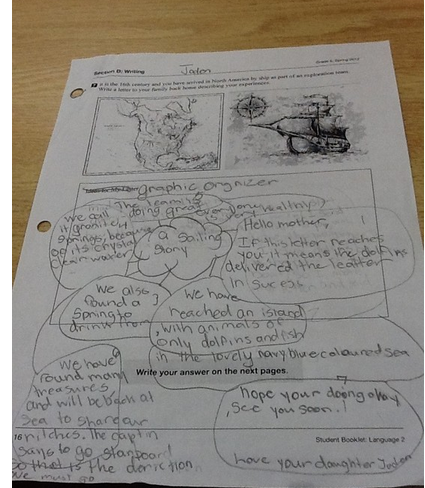 Section D: Writing
Jaden
It is the 16th century and you have arrived in North America by ship as part of an exploration team.
Write a letter to your family back home describing your experiences.
graphic orgnizer
The team is
doing great
very healthy
We call
it granite
Springs, because
of its crystal
clear water
a Sailing
Story
Hello mother,
If this letter reaches
you it means the dolfins
delivered the leatter
in
We also
found a
Spring to
drink from
We have
reached an island
, with animals of
only dolphins and fish
in the lovely navy blue coloured sea
Write your answer on the next pages.
We have
found many
treasures
and will be back at
sea to share our
ritches. The captin
says to go starboard
so that is the diriction
we must go
hope your doing okay
, see you soon!
Love your daughter Jaden
16
Student Booklet: Language 2